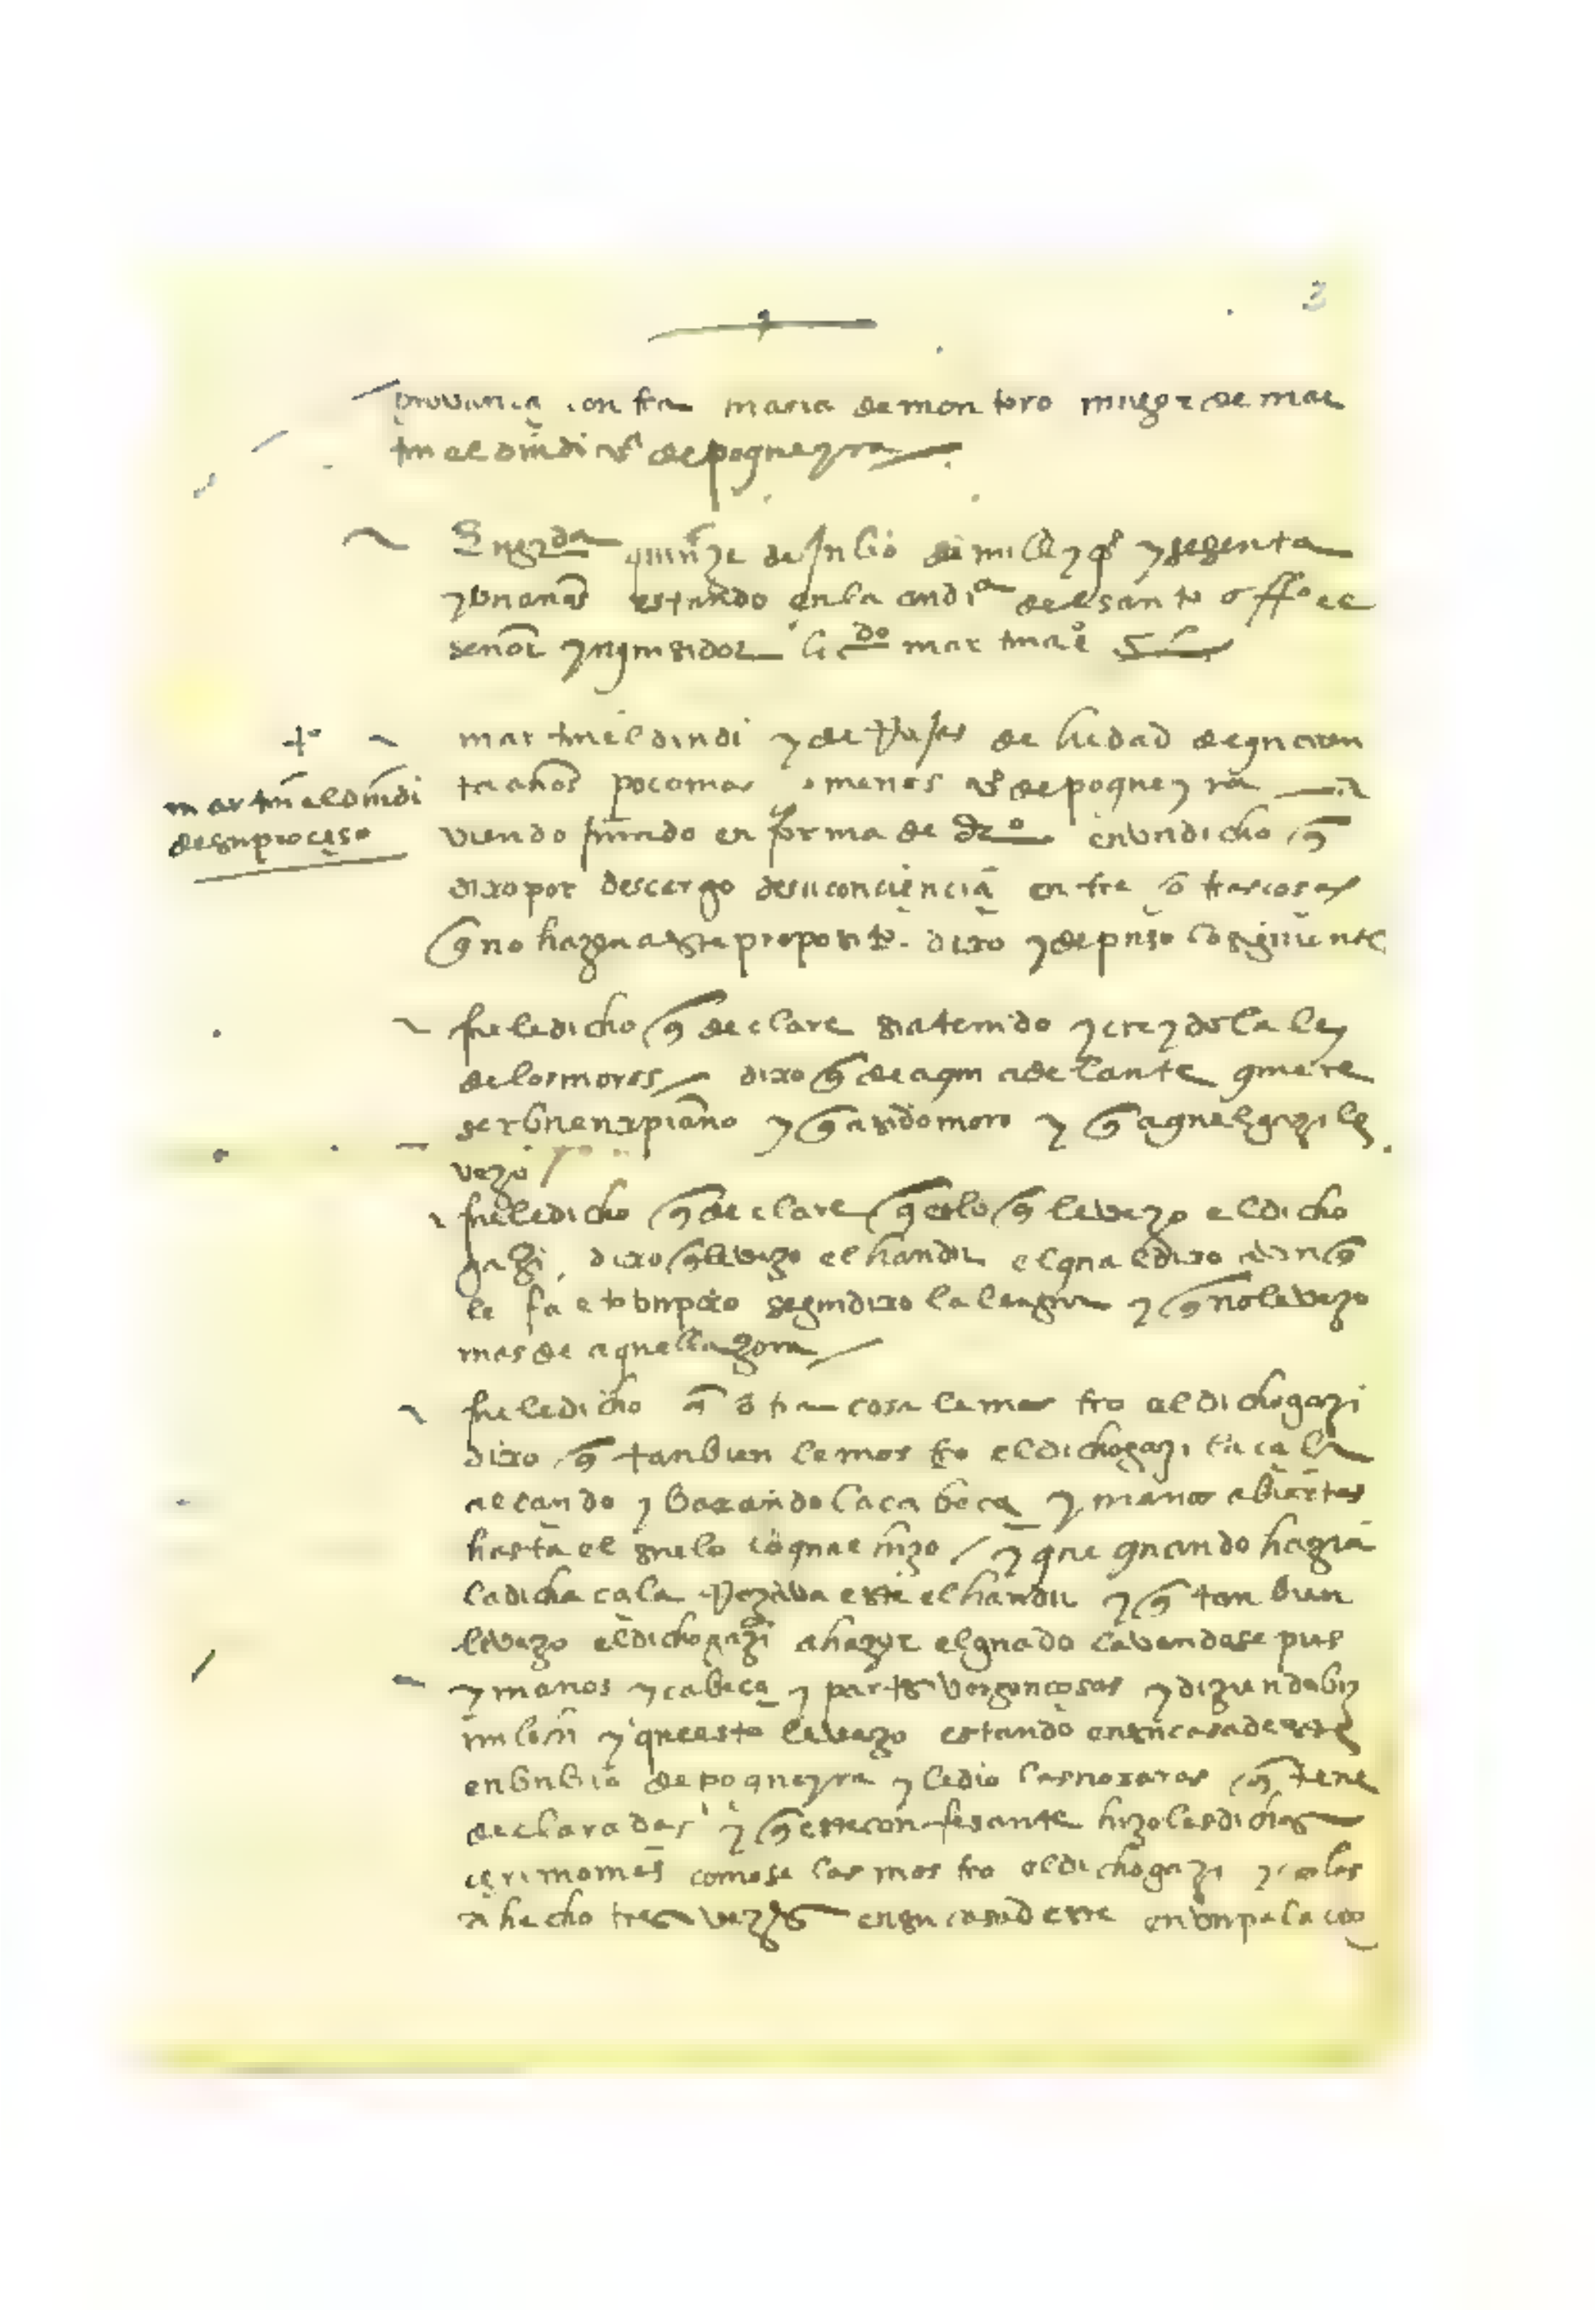 3
provança contra maria de montoro muger de mar
tin el dindi vº de poqueyra
En grda quinze de Julio de mill y qºs y sesenta
y un años estando en la audiª del santo offº el
señor ynquisidor licdo martin aº
martin el dindi y de de hedad de quaren
ta años poco mas o menos vº de poqueyra
viendo jurado en forma de drº en un dicho q
dixo por descargo de su conciencia entre otras cosas
q no hazen a este proposito dixo y depuso lo siguiente
+
martin el dindi
de su proceso
fue le dicho q declare si a tenido y creydo la ley
de los moros dixo q de aqui adelante quiere
ser buen xpiano y q a sido moro y q aquel gazi le
vezo
fue le dicho q declare q es lo q le vezo el dicho
gazi dixo q le vezo el handu el qual dixo aunq
le falto un poco segun dixo la lengua y q no le vezo
mas de aquella çora
fue le dicho q otra cosa le mostro el dicho gazi
dixo q tanbien le mostro el dicho gazi la çala
alçando y baxando la cabeça y manos abiertas
hasta el suelo lo qual hizo y que quando hazia
la dicha çala rezava este el handu y q tanbien
le vezo el dicho gazi a hazer el guado lavandose pies
y manos y cabeça y partes vergonçosas y diziendo biz
imilehi y que esto le vezo estando en su casa deste
en bubio de poqueyra y le dio las moxaras q tiene
declaradas y q este confesante hizo las dichas
cerimonias como se las mostro el dicho gazi y las
a hecho tres vezes en su casa deste en un palacio